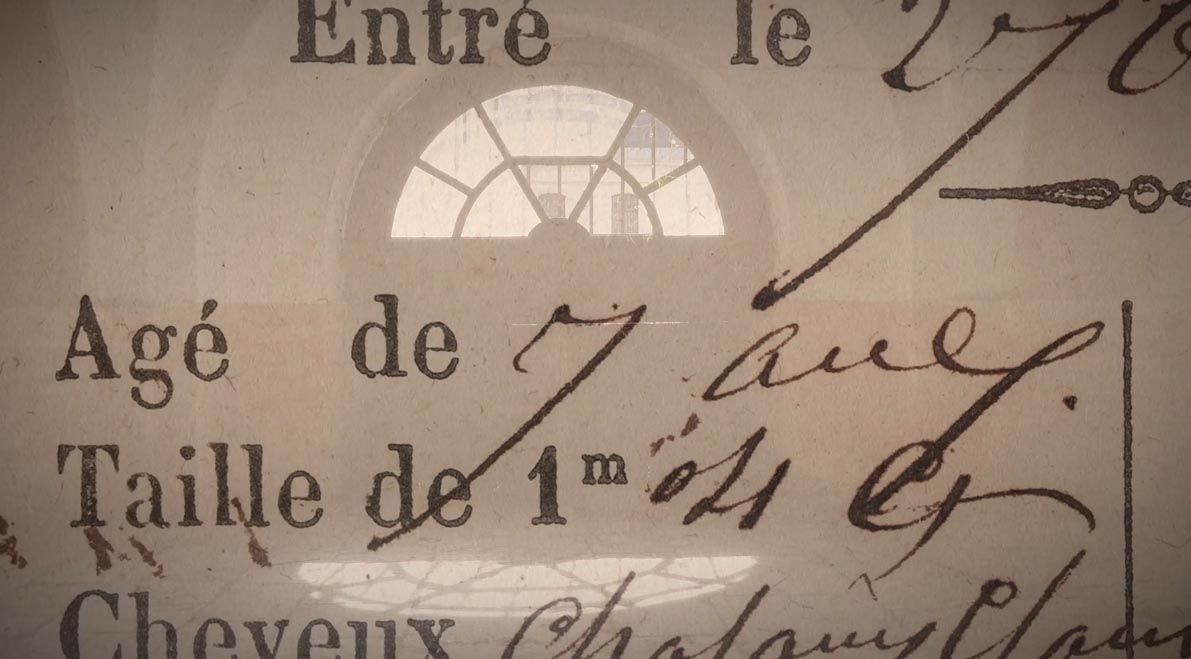 Entré le 27
Agé de 7 ans.
Taille de 1m 04 c
Cheveux Chatains